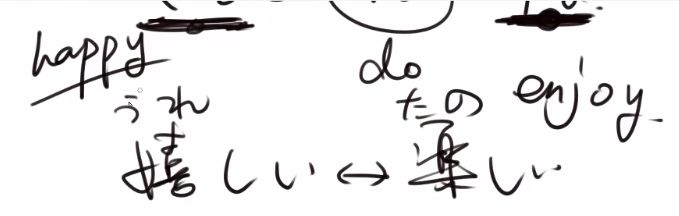 happy
do
enjoy
うれ たの
嬉しい ↔ 楽しい